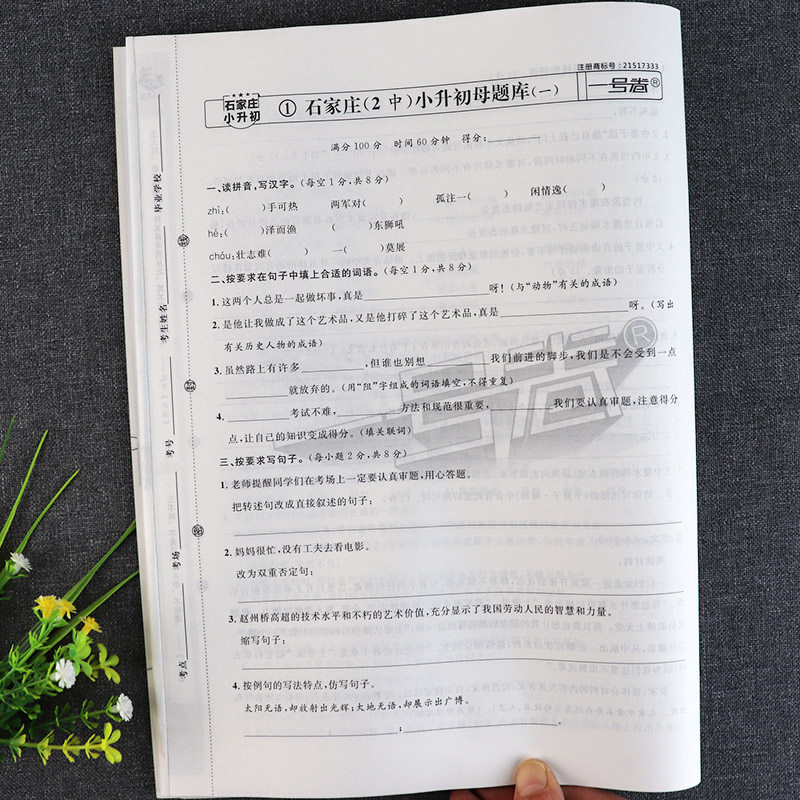 注册商标号:21517333
石家庄
小升初
① 石家庄(2 中)小升初母题库(一)
一号卷®
满分 100 分 时间 60 分钟 得分:________
一、读拼音,写汉字。(每空 1 分,共 8 分)
zhì:( )手可热 两军对( ) 孤注一( ) 闲情逸( )
hé:( )泽而渔 ( )东狮吼
chóu:壮志难( ) 一( )莫展
二、按要求在句子中填上合适的词语。(每空 1 分,共 8 分)
1. 这两个人总是一起做坏事,真是________呀!(与“动物”有关的成语)
2. 是他让我做成了这个艺术品,又是他打碎了这个艺术品,真是________呀。(写出
有关历史人物的成语)
3. 虽然路上有许多________,但谁也别想________我们前进的脚步,我们是不会受到一点
________就放弃的。(用“阻”字组成的词语填空,不得重复)
4. ________考试不难,________方法和规范很重要,________我们要认真审题,注意得分
点,让自己的知识变成得分。(填关联词)
三、按要求写句子。(每小题 2 分,共 8 分)
1. 老师提醒同学们在考场上一定要认真审题,用心答题。
把转述句改成直接叙述的句子:
2. 妈妈很忙,没有工夫去看电影。
改为双重否定句:
3. 赵州桥高超的技术水平和不朽的艺术价值,充分显示了我国劳动人民的智慧和力量。
缩写句子:
4. 按例句的写法特点,仿写句子。
太阳无语,却放射出光辉;大地无语,却展示出广博。
________,________;________,________。
毕业学校
考生姓名
考号
考场
考点
密
封
线
一号卷®